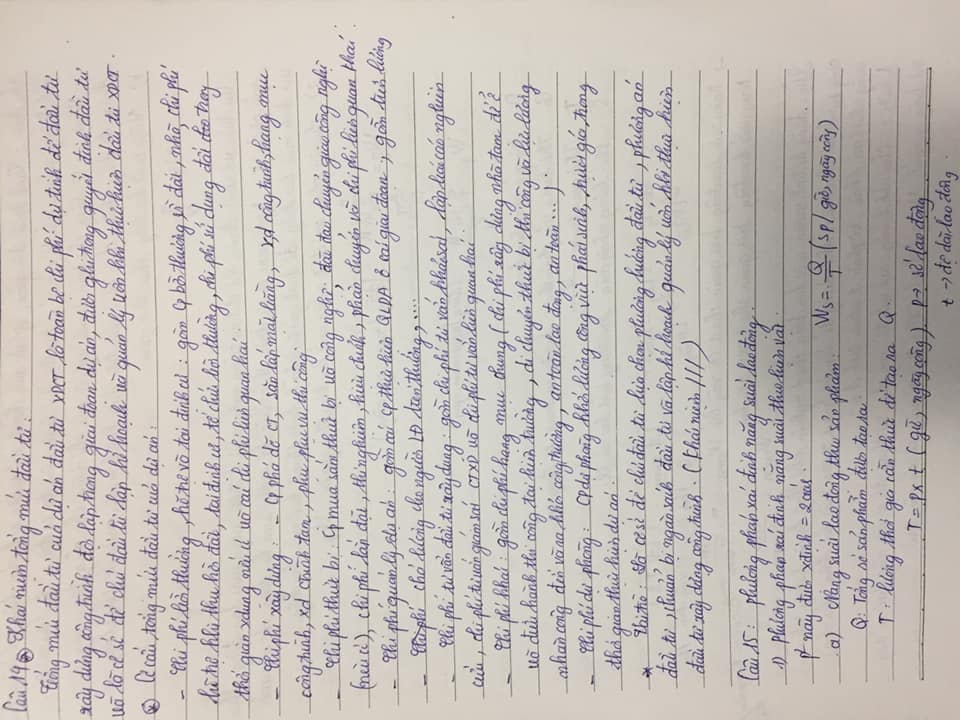 Câu 14 Khái niệm tổng mức đầu tư:
Tổng mức đầu tư của dự án đầu tư XDCT, là toàn bộ chi phí dự tính để đầu tư
xây dựng công trình đc lập trong giai đoạn dự án, được ghi trong quyết định đầu tư
và là cơ sở để chủ đầu tư lập kế hoạch và quản lý vốn khi thực hiện đầu tư XDCT.
Cơ cấu, tổng mức đầu tư của dự án:
- Chi phí bồi thường, hỗ trợ và tái định cư: gồm cp bồ thường về đất, nhà, chi phí
hỗ trợ khi thu hồi đất, tái định cư, tổ chức bồi thường, chi phí sử dụng đất đai trong
thời gian xdựng nếu có và các chi phí liên quan khác
- Chi phí xây dựng: - cp phá dỡ CT, san lấp mặt bằng, xd công trình, hạng mục
công trình, xd ctrình tạm, phục vụ thi công
- Chi phí thiết bị: cp mua sắm thiết bị và công nghệ; đào tạo chuyển giao công nghệ
(nếu có), chi phí lắp đặt, thí nghiệm, hiệu chỉnh, vận chuyển và chi phí liên quan khác
- Chi phí quản lý dự án: gồm các cp thực hiện QLDA ở các giai đoạn, gồm tiền lương
phải chả lương cho người LĐ, truyền thống,....
- Chi phí tư vấn đầu tư xây dựng: gồm chi phí tư vấn khảo sát, lập báo cáo nghiên
cứu, chi phí tư vấn giám sát CTXD và chi phí tư vấn liên quan khác
- Chi phí khác: gồm chi phí hạng mục chung (chi phí xây dựng nhà tạm để ở
và điều hành thi công tại hiện trường, di chuyển thiết bị thi công và lực lượng
nhân công đến và ra khỏi công trường, an toàn lao động, an toàn....)
- Chi phí dự phòng: cp dự phòng khối lượng công việc phát sinh, trượt giá, trong
thời gian thực hiện dự án
* Vai trò: là cơ sở để chủ đầu tư lựa chọn phương hướng đầu tư, phương án
đầu tư, chuẩn bị ngân sách đầu tư và lập kế hoạch quản lý vốn khi thực hiện
đầu tư xây dựng công trình. (Khái niệm !!!)
Câu 15: phương pháp xác định năng suất lao động
1) Phương pháp xác định năng suất theo hiện vật
P' này được xđịnh = 2 cách
a) Năng suất lao động theo sản phẩm: Ws = Q/T (SP/giờ, ngày công)
Q: Tổng số sản phẩm được tạo ra
T: lượng thời gian cần thiết để tạo ra Q.
T = P x t (giờ, ngày công) P -> số lao động
t -> độ dài lao động